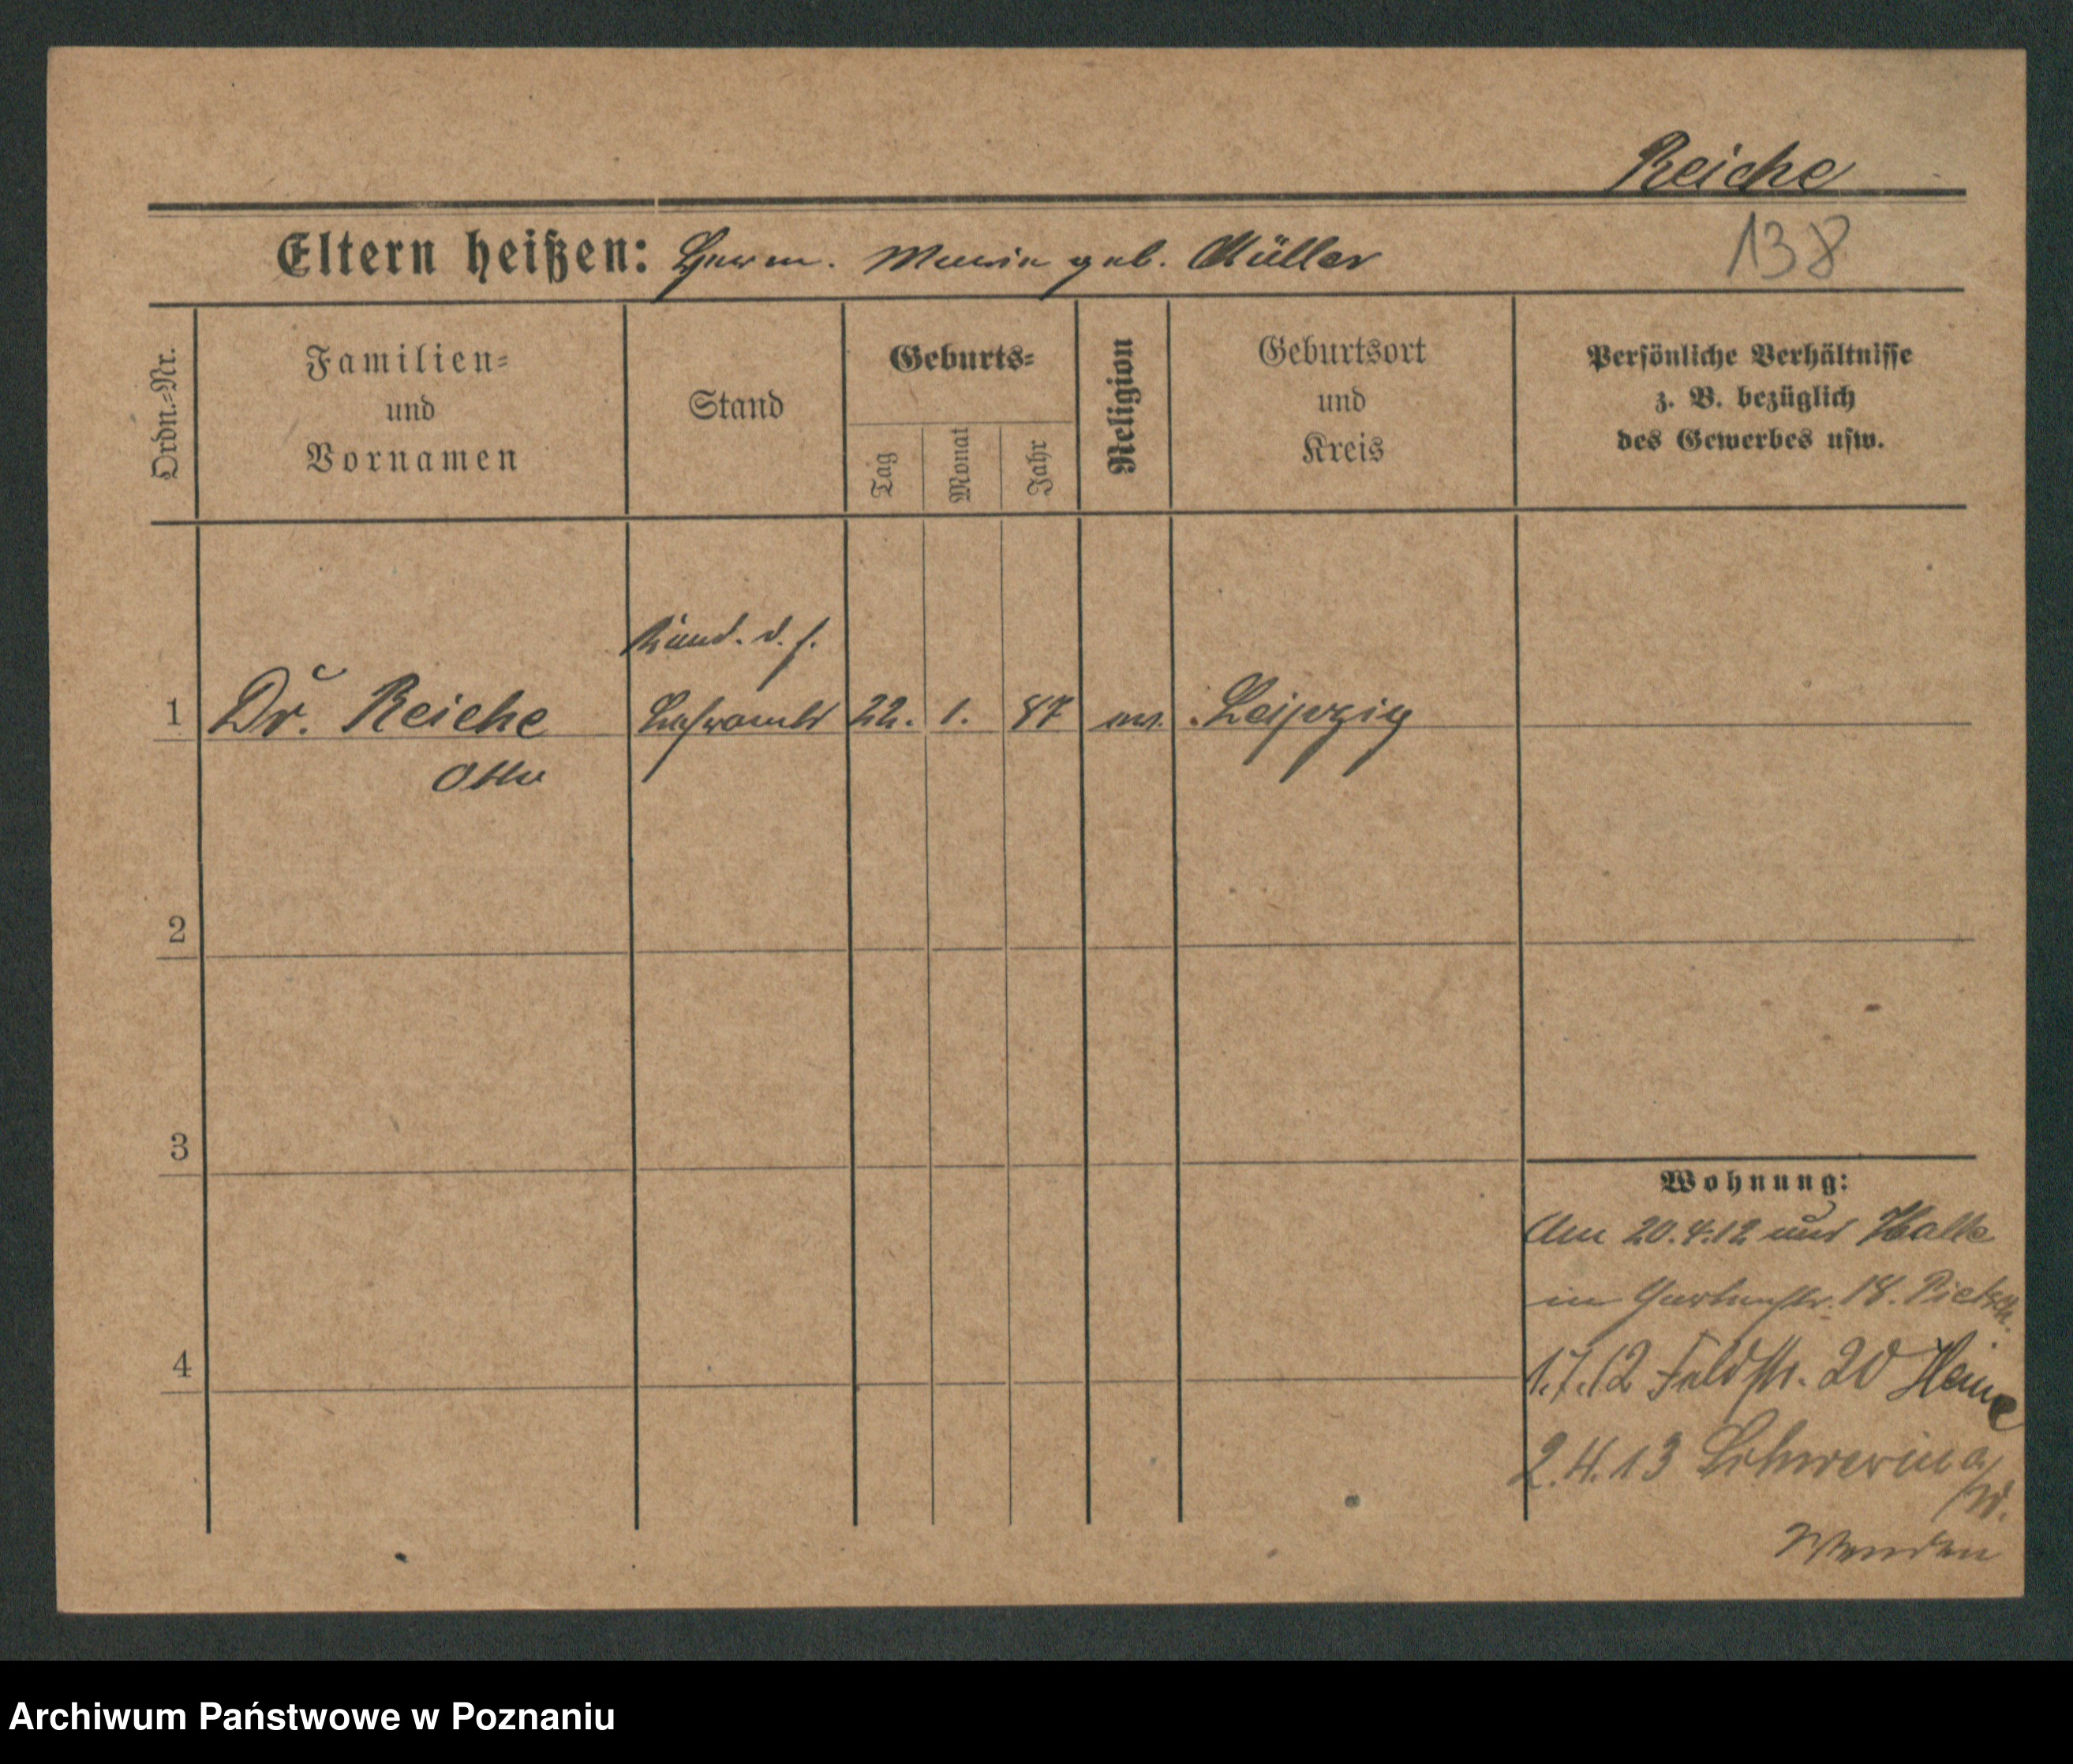 Reiche
138
Eltern heißen: Herm. Marie geb. Müller
Ordn.-Nr.
Familien-
und
Vornamen
Stand
Geburts-
Tag
Monat
Jahr
Religion
Geburtsort
und
Kreis
Persönliche Verhältnisse
z. B. bezüglich
des Gewerbes usw.
Kand. d. h.
1 Dr. Reiche Lehramts 22. 1. 87 ev. Leipzig
Otto
2
3
4
Wohnung:
Am 20.4.12 aus Halle
in Gartenstr. 18. Pietsch.
1.7.12 Feldstr. 20 Heine
2.4.13 Schwerin a/W.
Wenden
Archiwum Państwowe w Poznaniu